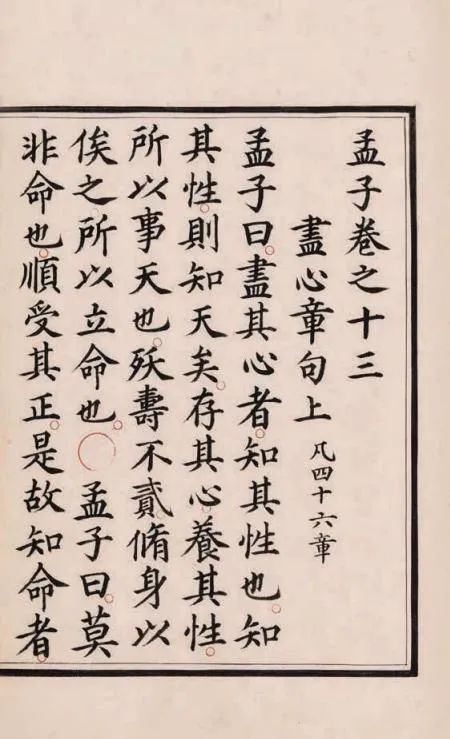 孟子卷之十三
盡心章句上 凡四十六章
孟子曰。盡其心者。知其性也。知
其性。則知天矣。存其心。養其性。
所以事天也。殀壽不貳。脩身以
俟之。所以立命也。○孟子曰。莫
非命也。順受其正。是故知命者。